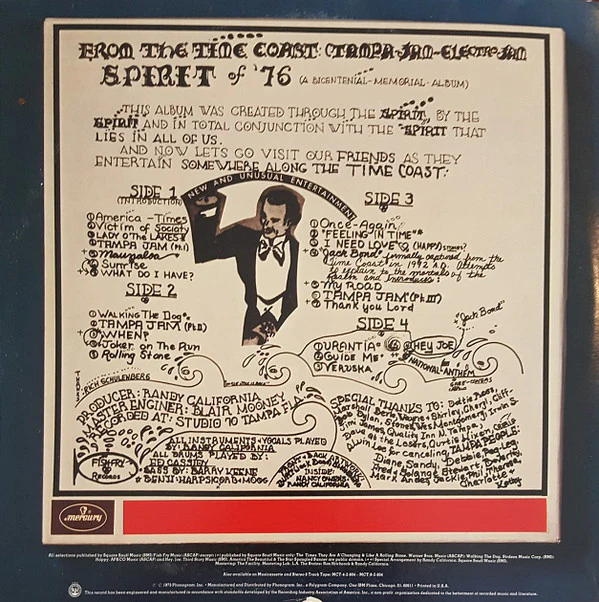 FROM THE TIME COAST: (TAMPA-JAM-ELECTRO-JAM
SPIRIT of '76 (A BICENTENIAL-MEMORIAL-ALBUM)
THIS ALBUM WAS CREATED THROUGH THE SPIRIT, BY THE
SPIRIT AND IN TOTAL CONJUNCTION WITH THE "SPIRIT THAT
LIES IN ALL OF US.
AND NOW LETS GO VISIT OUR FRIENDS AS THEY
ENTERTAIN SOMEWHERE ALONG THE TIME COAST:
NEW AND UNUSUAL ENTERTAINMENT
SIDE 1
(INTRODUCTION)
1 America - Times
2 Victim of Society
3 LADY O' THE LAKES
4 TAMPA JAM (Pt.I)
5 Maunaloa
6 Sunrise
7 WHAT DO I HAVE?
SIDE 2
1 WALKING THE DOG
2 TAMPA JAM (Pt II)
3 WHEN?
4 Joker on The Run
5 Rolling Stone
SIDE 3
1 Once-Again
2 "FEELING IN TIME"
3 I NEED LOVE (HAPPY)
4 "Jack Bond" formally captured from the
Time Coast in 1992 A.D. Attempts
to explain to the mortals of the
Realm and Introduces:
5 My ROAD
6 TAMPA JAM (Pt III)
7 Thank you Lord
SIDE 4
1 URANTIA
2 GUIDE ME
3 VERUSKA
4 HEY JOE
5 NATIONAL-ANTHEM
"Jack Bond"
RICH SCHULENBERG
PRODUCER: RANDY CALIFORNIA
MASTER ENGINER: BLAIR MOONEY
RECORDED AT: STUDIO 70 TAMPA FLA.
ALL INSTRUMENTS + VOCALS PLAYED
BY: RANDY CALIFORNIA
ALL DRUMS PLAYED BY:
ED CASSIDY
BASS BY: BARRY KEENE
BENJI: HARPSICORD + MOOG
FISH FRY
RECORDS
FRONT + BACK ARTWORK:
INSIDE:
RANDY CALIFORNIA
SPECIAL THANKS TO:
Marshall Berle, Wayne + Shirley, Cheryl, Cliff
Bob Dylan, Stones, Wes Montgomery, Irwin S.
Jim James, Quality Inn N. Tampa
Dave at the Losers, Curtis Mixon, Chris
Alvin Lee for canceling, TAMPA PEOPLE:
Diane, Sandy, Debbie, Peg-Leg
Fred + Solange Stewart, Dougherty
Mark Andes, Jackie, Phil Tharette
Charlotte + Kathy
mercury
All selections published by Square Snull Music (BMI)
Also available on Musicassette and Stereo 8 Track Tape: MCT-4-2-804 · MC7 8-2-804
© 1975 Phonogram, Inc. • Manufactured and Distributed by Phonogram, Inc., a Polygram Company, One IBM Plaza, Chicago, Ill. 60611 • Printed in U.S.A.
This record has been engineered and manufactured in accordance with standards developed by the Recording Industry Association of America, Inc., a non-profit organization dedicated to the betterment of recorded music and literature.